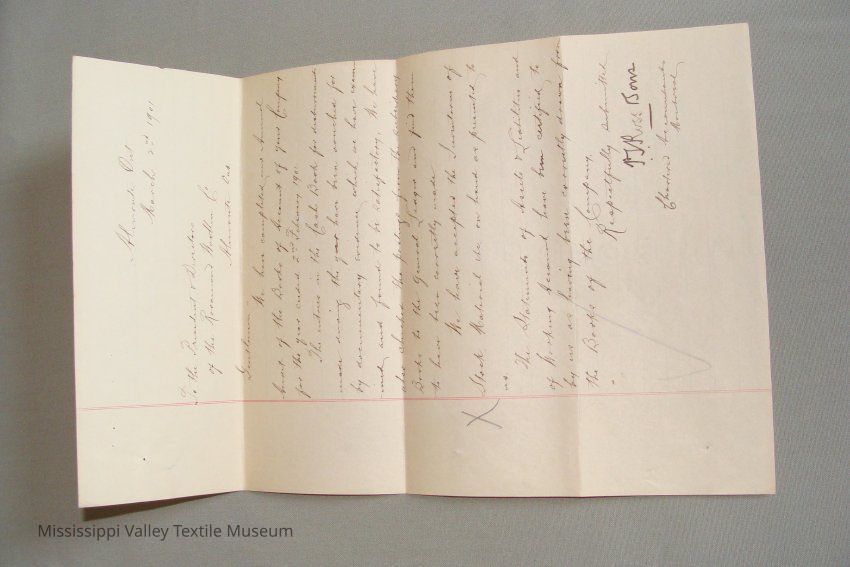 Almonte Ont
March 2nd 1901
To the President & Directors
of the Rosamond Woollen Co
Almonte Ont
Gentlemen
We have completed our Annual
Audit of the Books of Account of your Company
for the year ended 2nd February 1901.
The entries in the Cash Book for disbursements
made during the year have been vouched for
by documentary evidence which we have exam
ined and found to be satisfactory. We have
also checked the postings from the subsidiary
Books to the General Ledger and find them
to have been correctly made.
We have accepted the Inventories of
Stock Material &c on hand as presented to
us.
The Statements of Assets & Liabilities and
of Working Account have been certified to
by us as having been correctly drawn from
the Books of the Company.
Respectfully submitted
P S Ross & Sons
Chartered Accountants
Montreal
X
Mississippi Valley Textile Museum